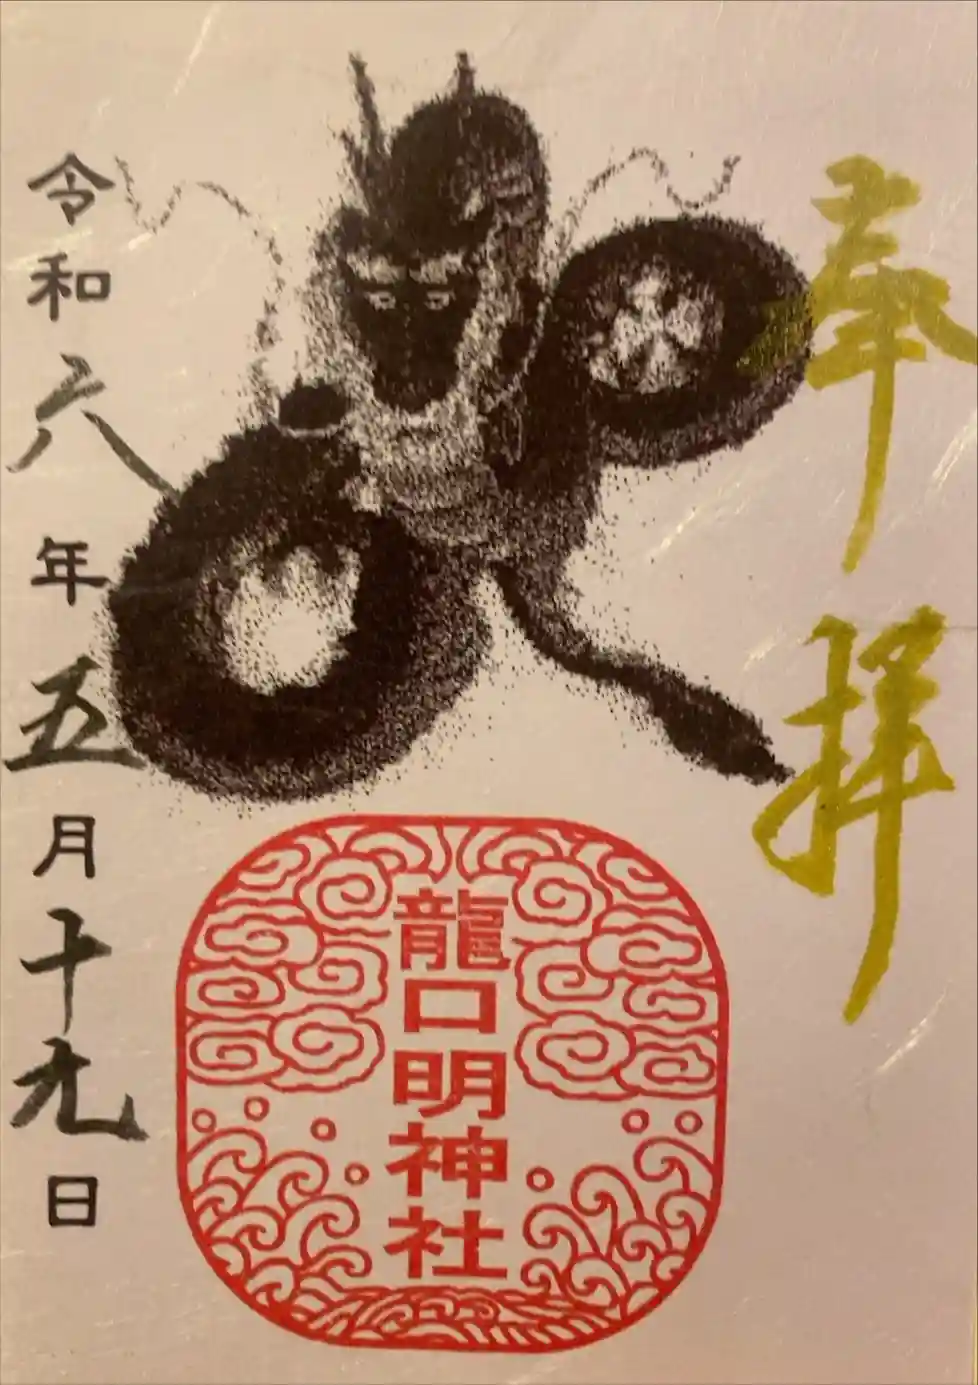 奉拝
龍口明神社
令和六年五月十九日